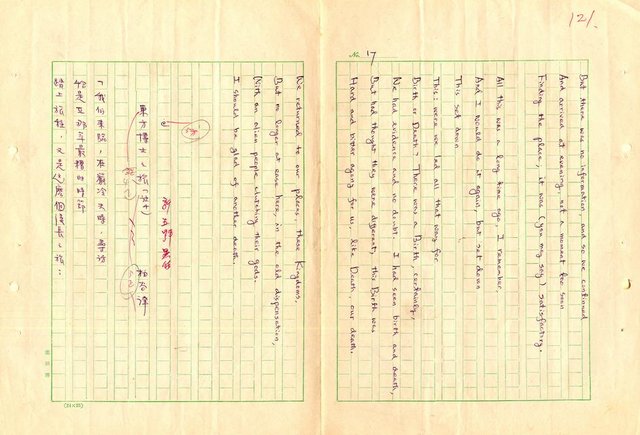 121.
No. 17
But there was no information, and so we continued
And arrived at evening, not a moment too soon
Finding the place; it was (you may say) satisfactory.
All this was a long time ago, I remember,
And I would do it again, but set down
This set down
This: were we led all that way for
Birth or Death? There was a Birth, certainly,
We had evidence and no doubt. I had seen birth and death,
But had thought they were different; this Birth was
Hard and bitter agony for us, like Death, our death.
We returned to our places, these Kingdoms,
But no longer at ease here, in the old dispensation,
With an alien people clutching their gods.
I should be glad of another death.
東方博士之旅
「我們來臨,在嚴冷天時,
恰是五那年最糟的時節
踏上旅程,又是這麼個長長之旅:
(24×25)